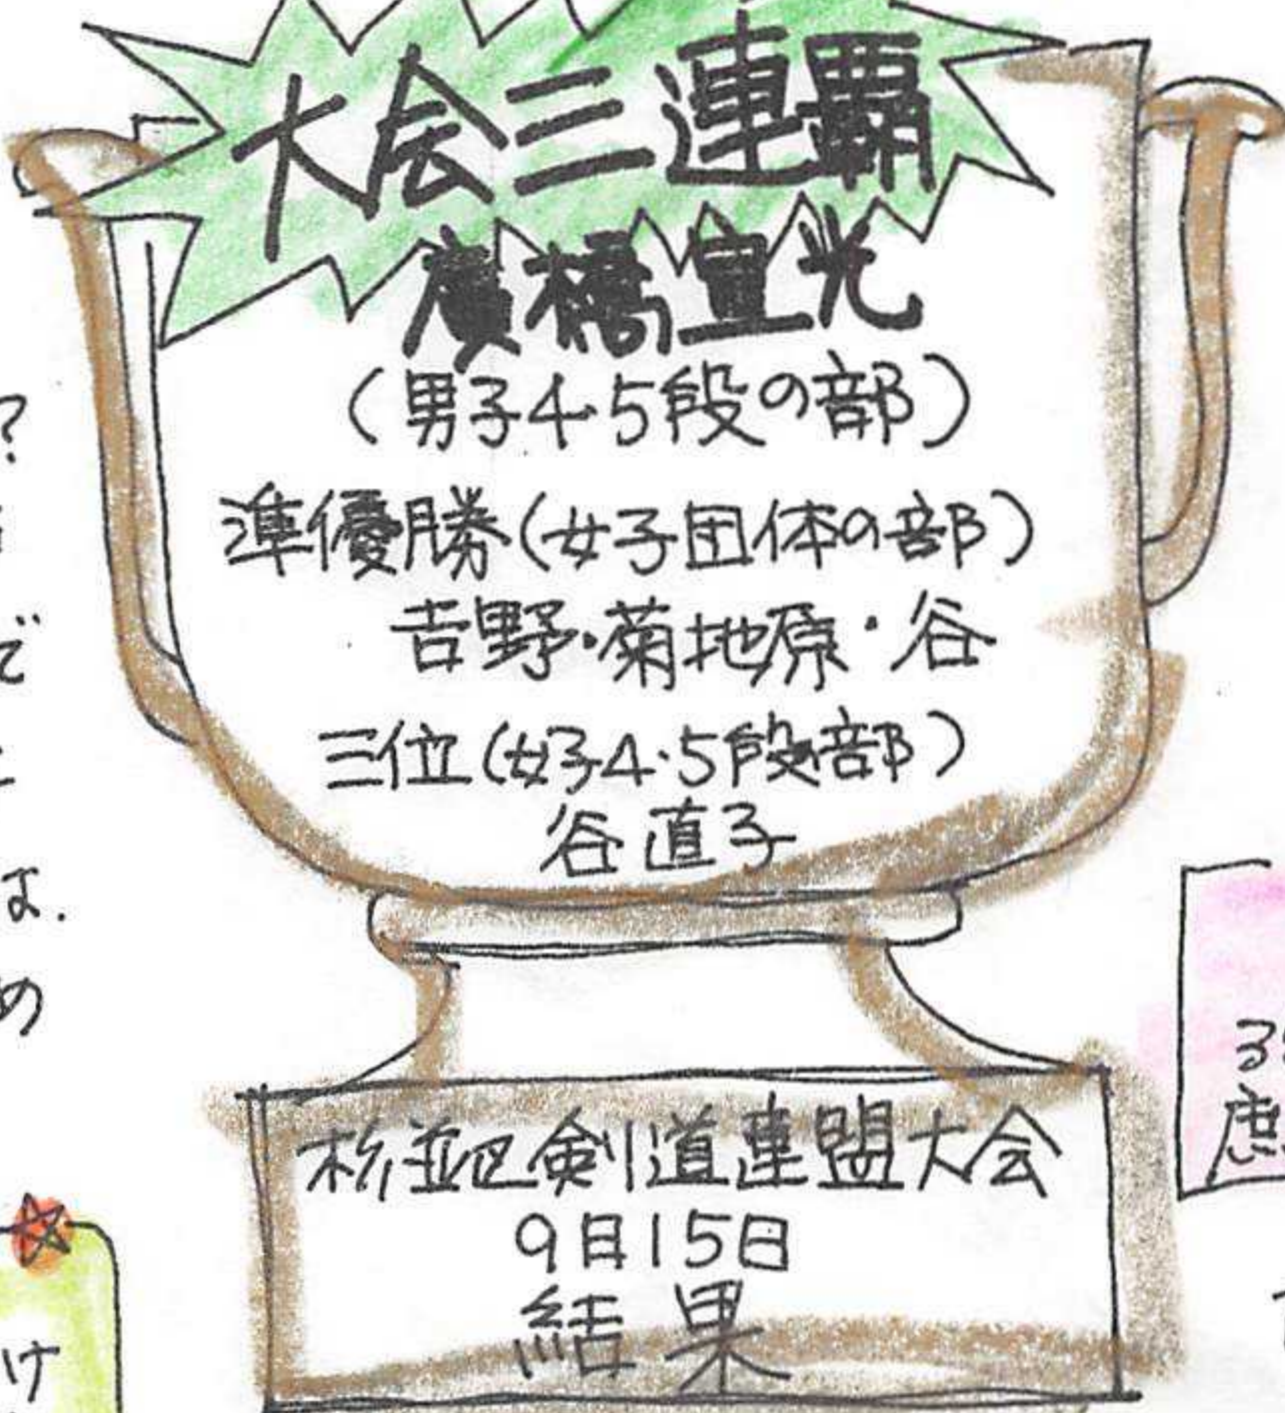 大会三連覇
廣橋宣光
(男子4・5段の部)
準優勝(女子団体の部)
吉野・菊地原・谷
三位(女子4・5段の部)
谷直子
杉並区剣道連盟大会
9月15日
結果
?
で
は.
め
け
る
庶